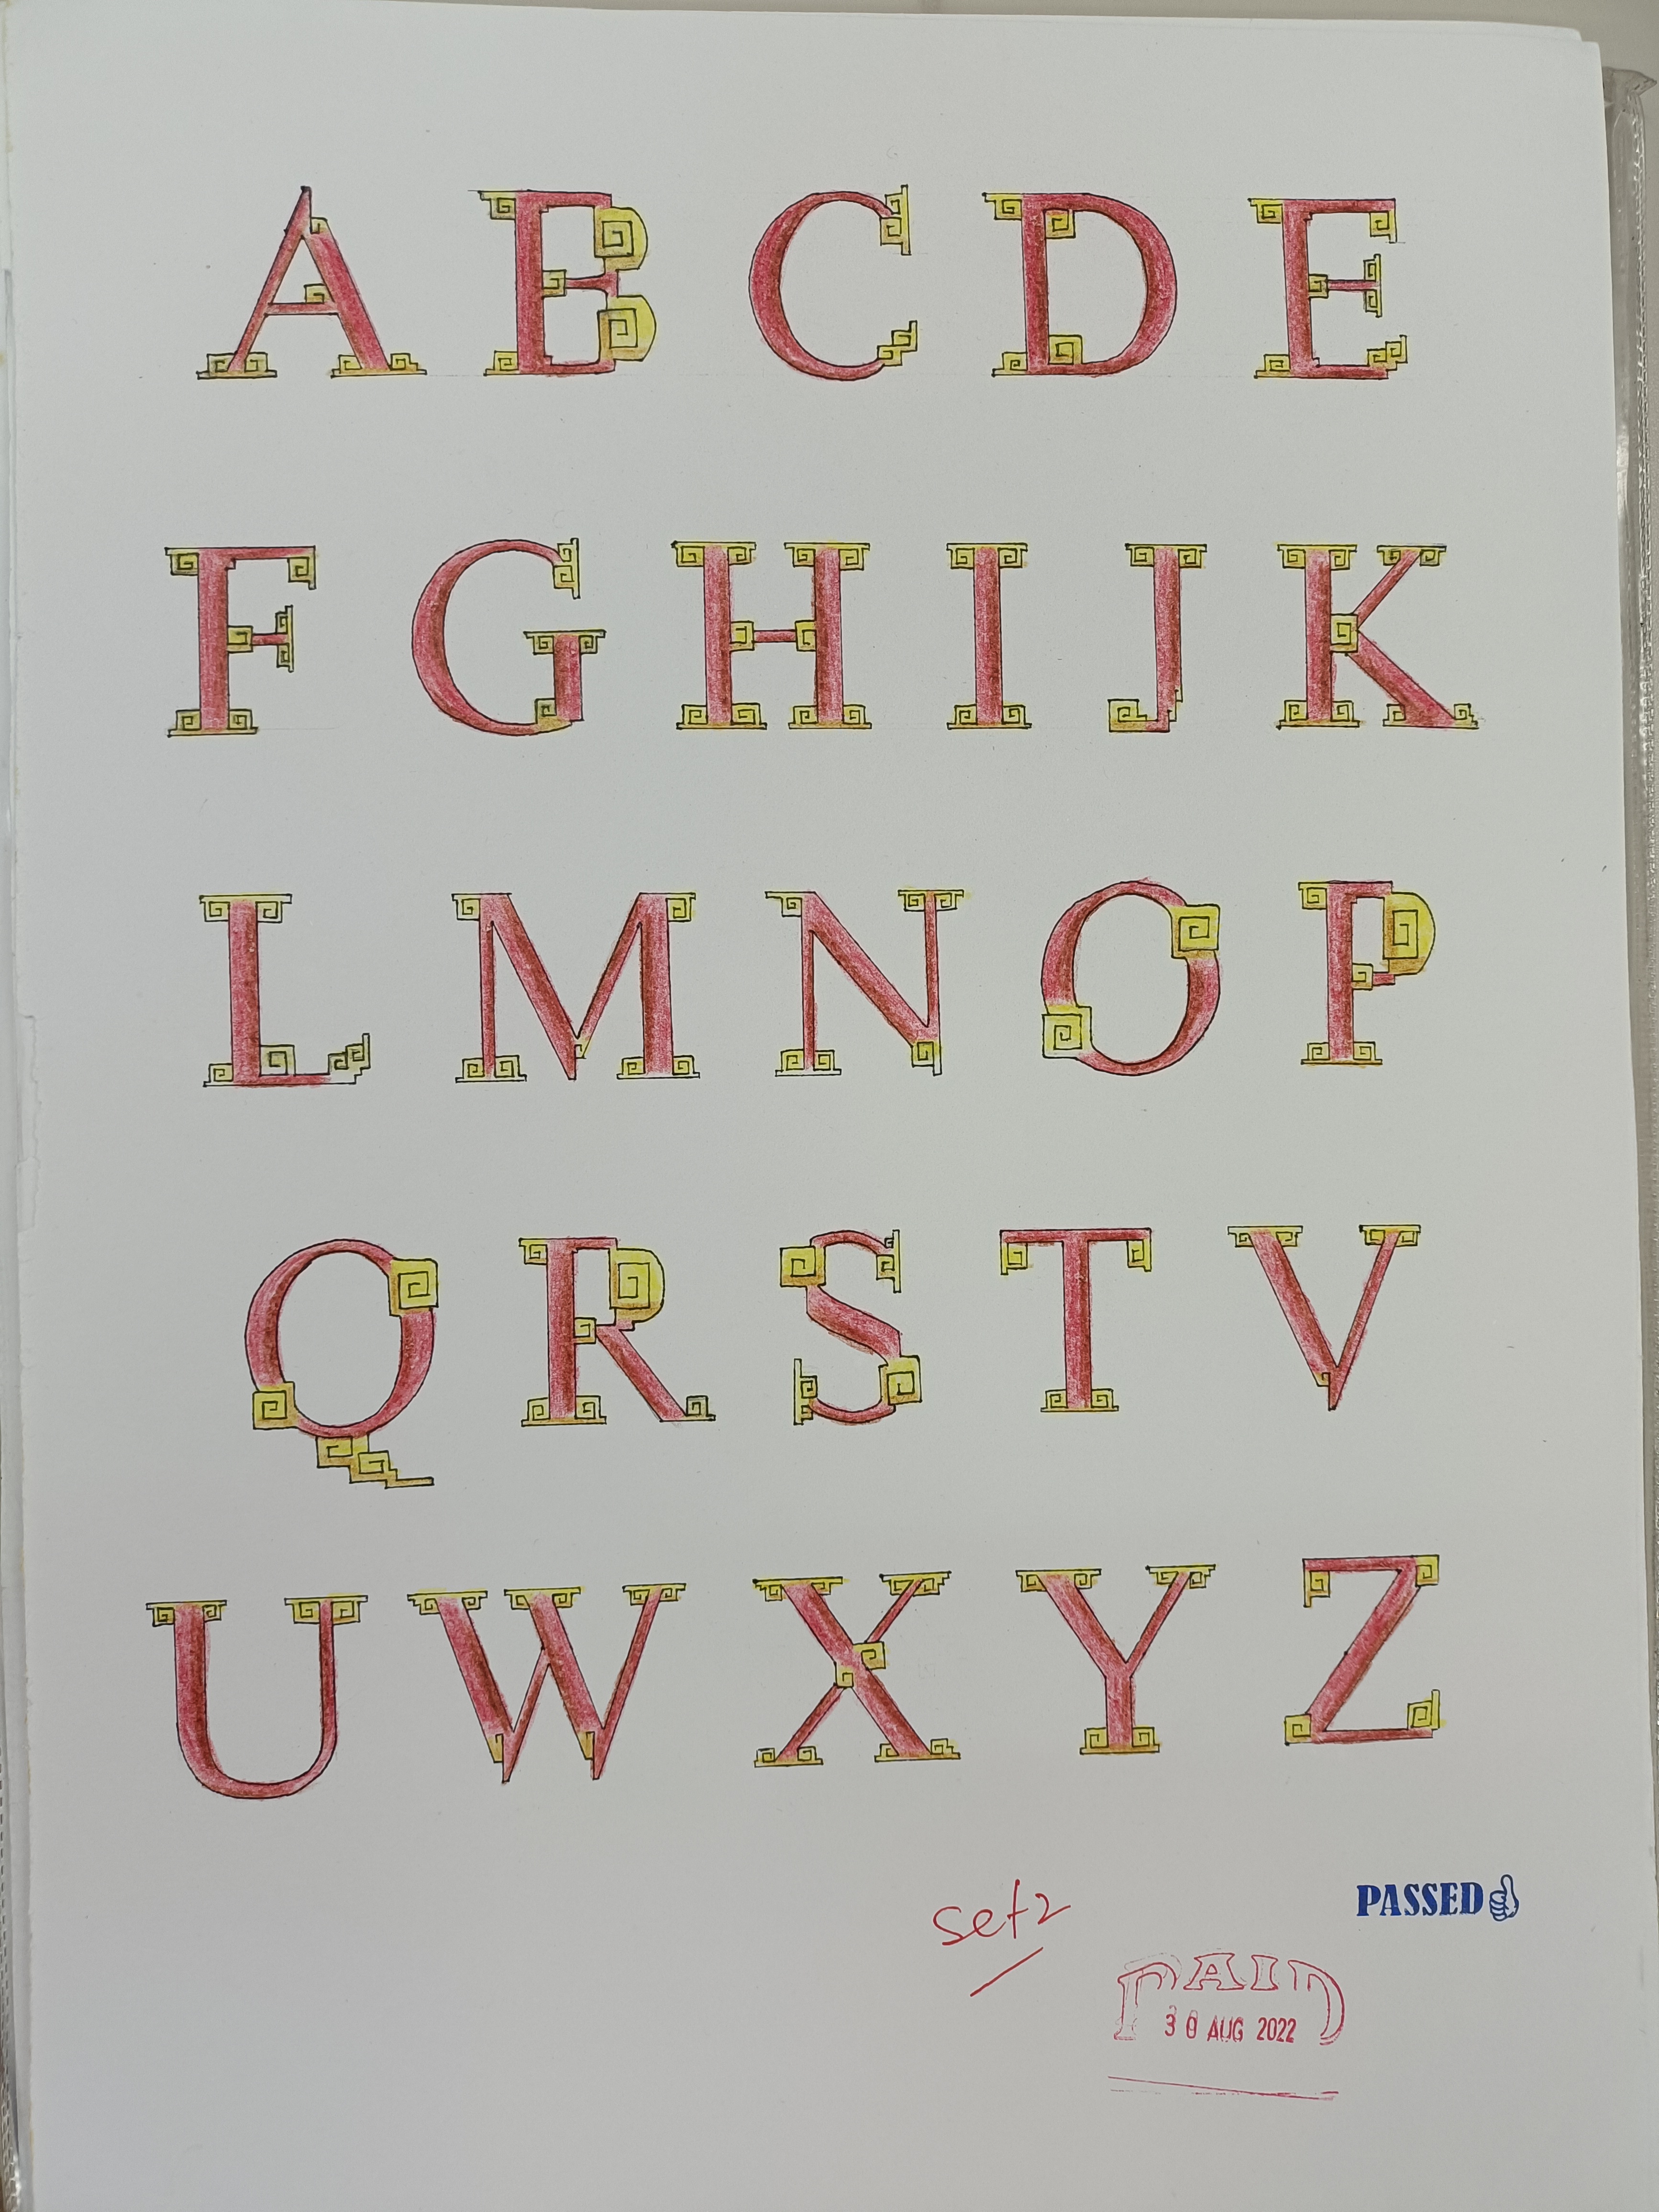 A B C D E
F G H I J K
L M N O P
Q R S T V
U W X Y Z
set 2
PASSED
PAID
30 AUG 2022